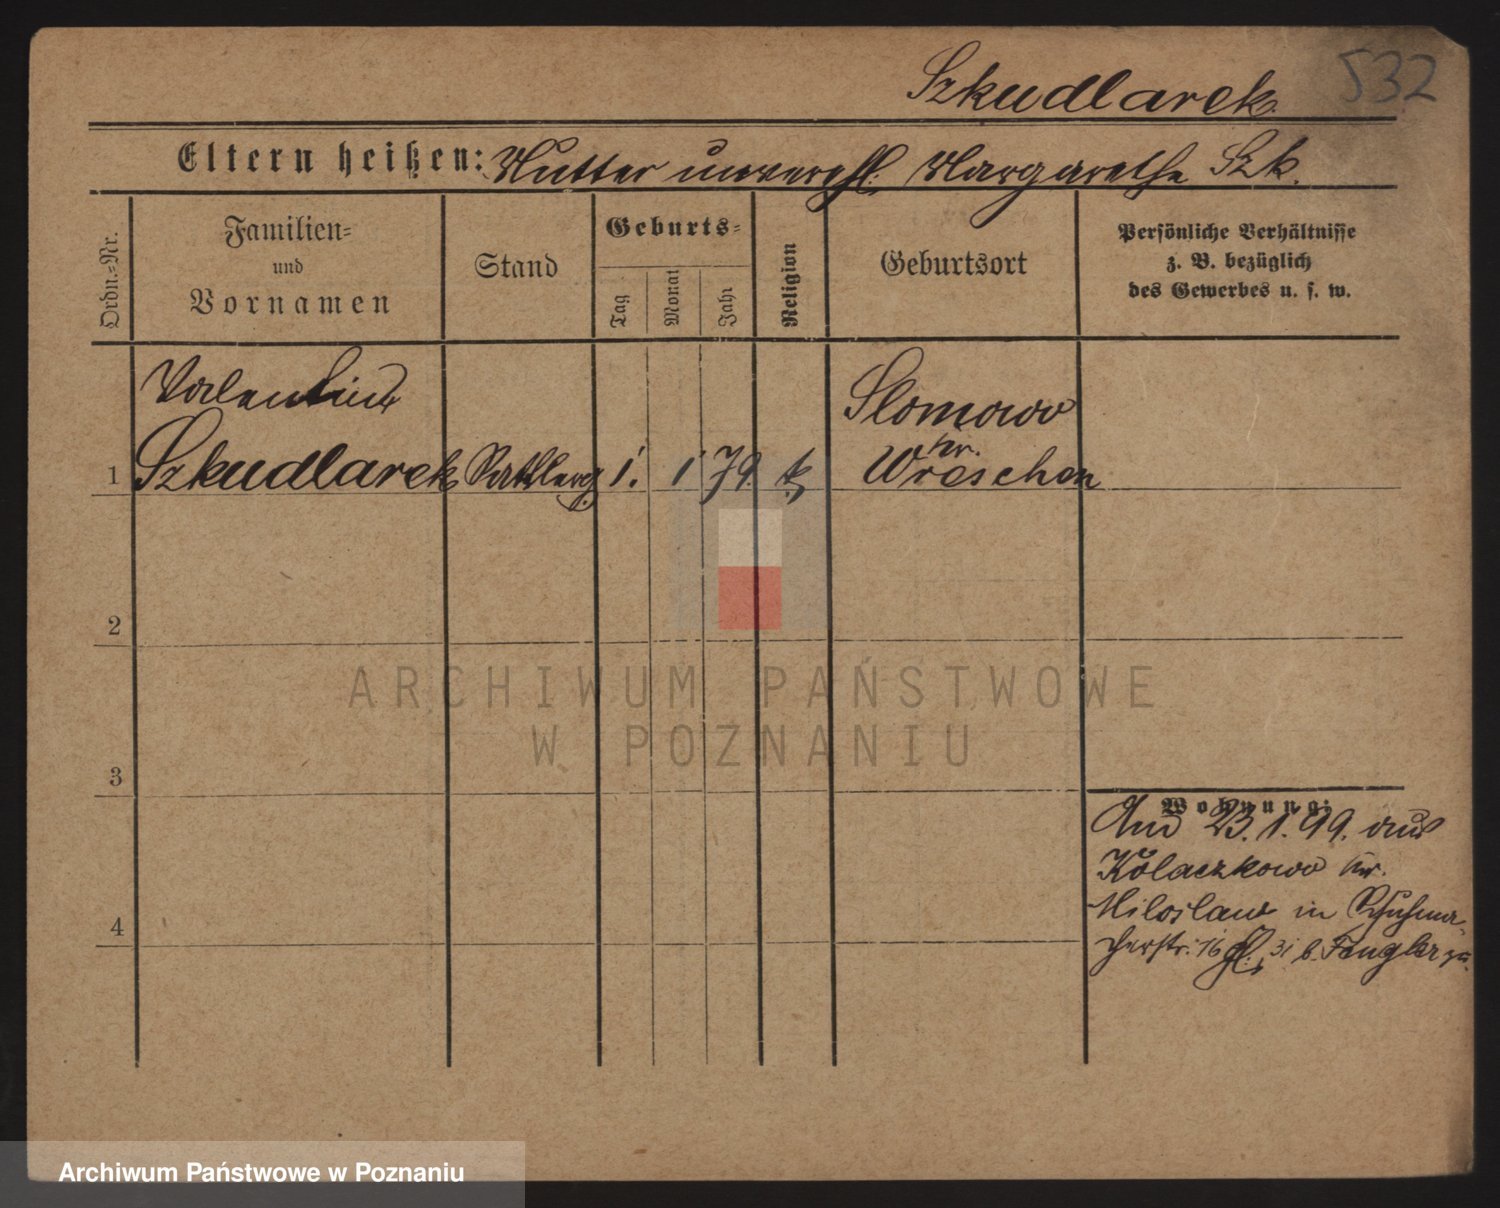 532
Szkudlarek
Eltern heißen: Mutter unverehl: Margarethe Szk.
Ordn.=Nr.
Familien=
und
Vornamen
Stand
Geburts=
Tag
Monat
Jahr
Religion
Geburtsort
Persönliche Verhältnisse
z. B. bezüglich
des Gewerbes u. s. w.
Valentin
Slomowo
Kr.
1 Szkudlarek 1. 1 79. k. Wreschen
2
ARCHIWUM PAŃSTWOWE
W POZNANIU
3
Wohnung:
23.1.99. aus
Kolaczkowo Kr.
4 Miloslaw in Schuhma-
cherstr. 16 31 b. Fengler zu.
Archiwum Państwowe w Poznaniu